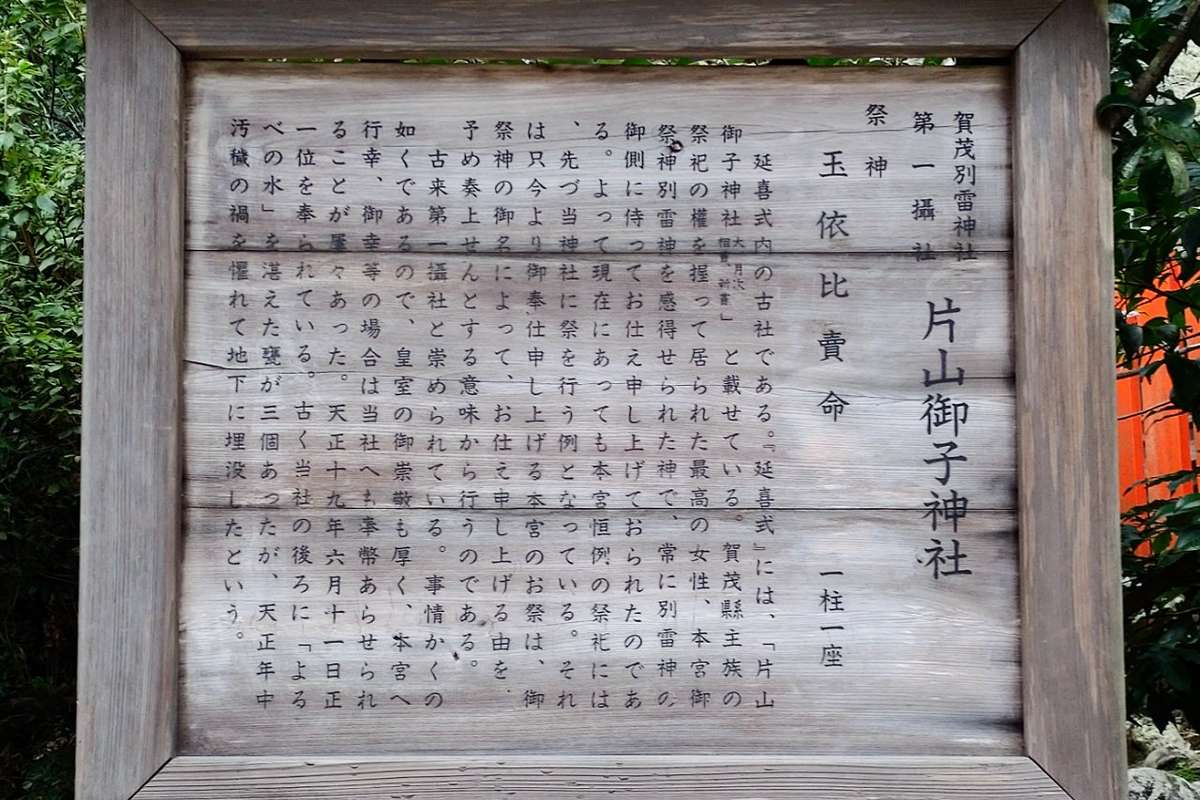 賀茂別雷神社
第一攝社
片山御子神社
祭神
玉依比賣命 一柱一座
延喜式内の古社である。『延喜式』には、「片山
御子神社 大 月次 相嘗 新嘗」と載せている。賀茂縣主族の
祭祀の權を握って居られた最高の女性、本宮御
祭神別雷神を感得せられた神で、常に別雷神の
御側に侍ってお仕え申し上げておられたのであ
る。よって現在にあっても本宮恒例の祭祀には
、先づ当神社に祭を行う例となっている。それ
は只今より御奉仕申し上げる本宮のお祭は、御
祭神の御名によって、お仕え申し上げる由を、
予め奏上せんとする意味から行うのである。
古来第一攝社と崇められている。事情かくの
如くであるので、皇室の御崇敬も厚く、本宮へ
行幸、御幸等の場合は当社へも奉幣あらせられ
ることが屢々あった。天正十九年六月十一日正
一位を奉られている。古く当社の後ろに「よる
べの水」を湛えた甕が三個あったが、天正年中
汚穢の禍を懼れて地下に埋没したという。